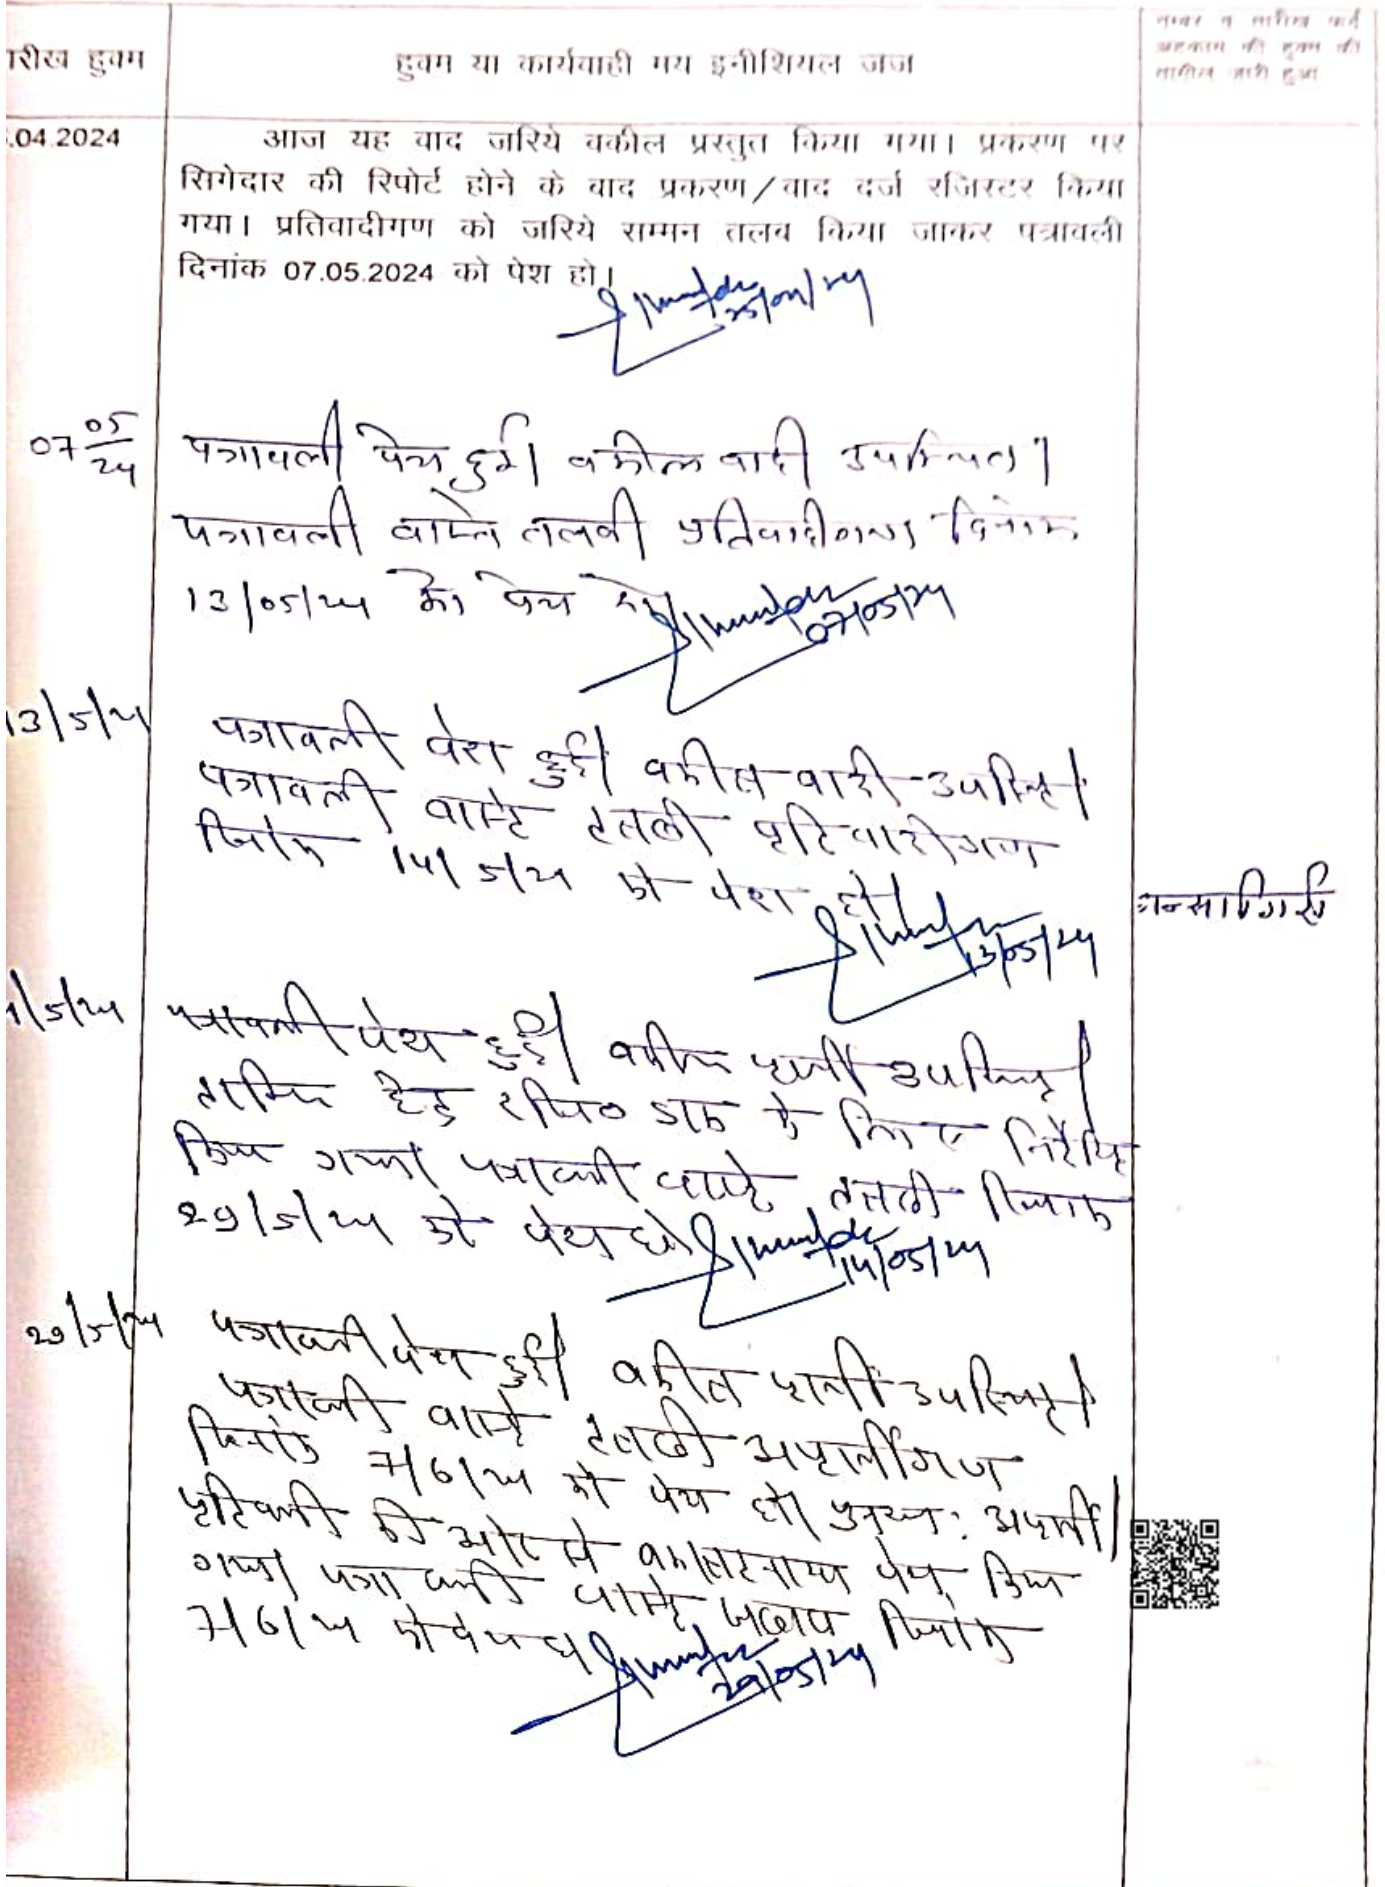 रीख हुक्म
हुक्म या कार्यवाही मय इनीशियल जज
नम्बर व तारीख
अहकाम जो हुक्म की
तामील जारी हुआ
.04.2024
आज यह वाद जरिये वकील प्रस्तुत किया गया। प्रकरण पर
सिगेदार की रिपोर्ट होने के बाद प्रकरण/वाद दर्ज रजिस्टर किया
गया। प्रतिवादीगण को जरिये सम्मन तलब किया जाकर पत्रावली
दिनांक 07.05.2024 को पेश हो।
07 05/24
पत्रावली पेश हुई। वकील वादी उपस्थित।
पत्रावली वास्ते तलबी प्रतिवादीगण दिनांक
13/05/24 को पेश हो।
07/05/24
13/5/24
पत्रावली पेश हुई। वकील वादी उपस्थित।
पत्रावली वास्ते तलबी प्रतिवादीगण
दिनांक 14/5/24 को पेश हो।
13/05/24
/5/24
पत्रावली पेश हुई। वकील प्रार्थी उपस्थित।
हेतु रजि0 डाक के लिए निर्देशित
किया गया। पत्रावली वास्ते तलबी दिनांक
29/5/24 को पेश हो।
14/05/24
29/5/24
पत्रावली पेश हुई। वकील प्रार्थी उपस्थित।
पत्रावली वास्ते तलबी अप्रार्थीगण
दिनांक 7/6/24 को पेश हो। पुनश्च: अप्रार्थी/
प्रतिवादी की ओर से वकालतनामा पेश किया
गया। पत्रावली वास्ते जवाब दिनांक
7/6/24 को पेश हो
29/05/24